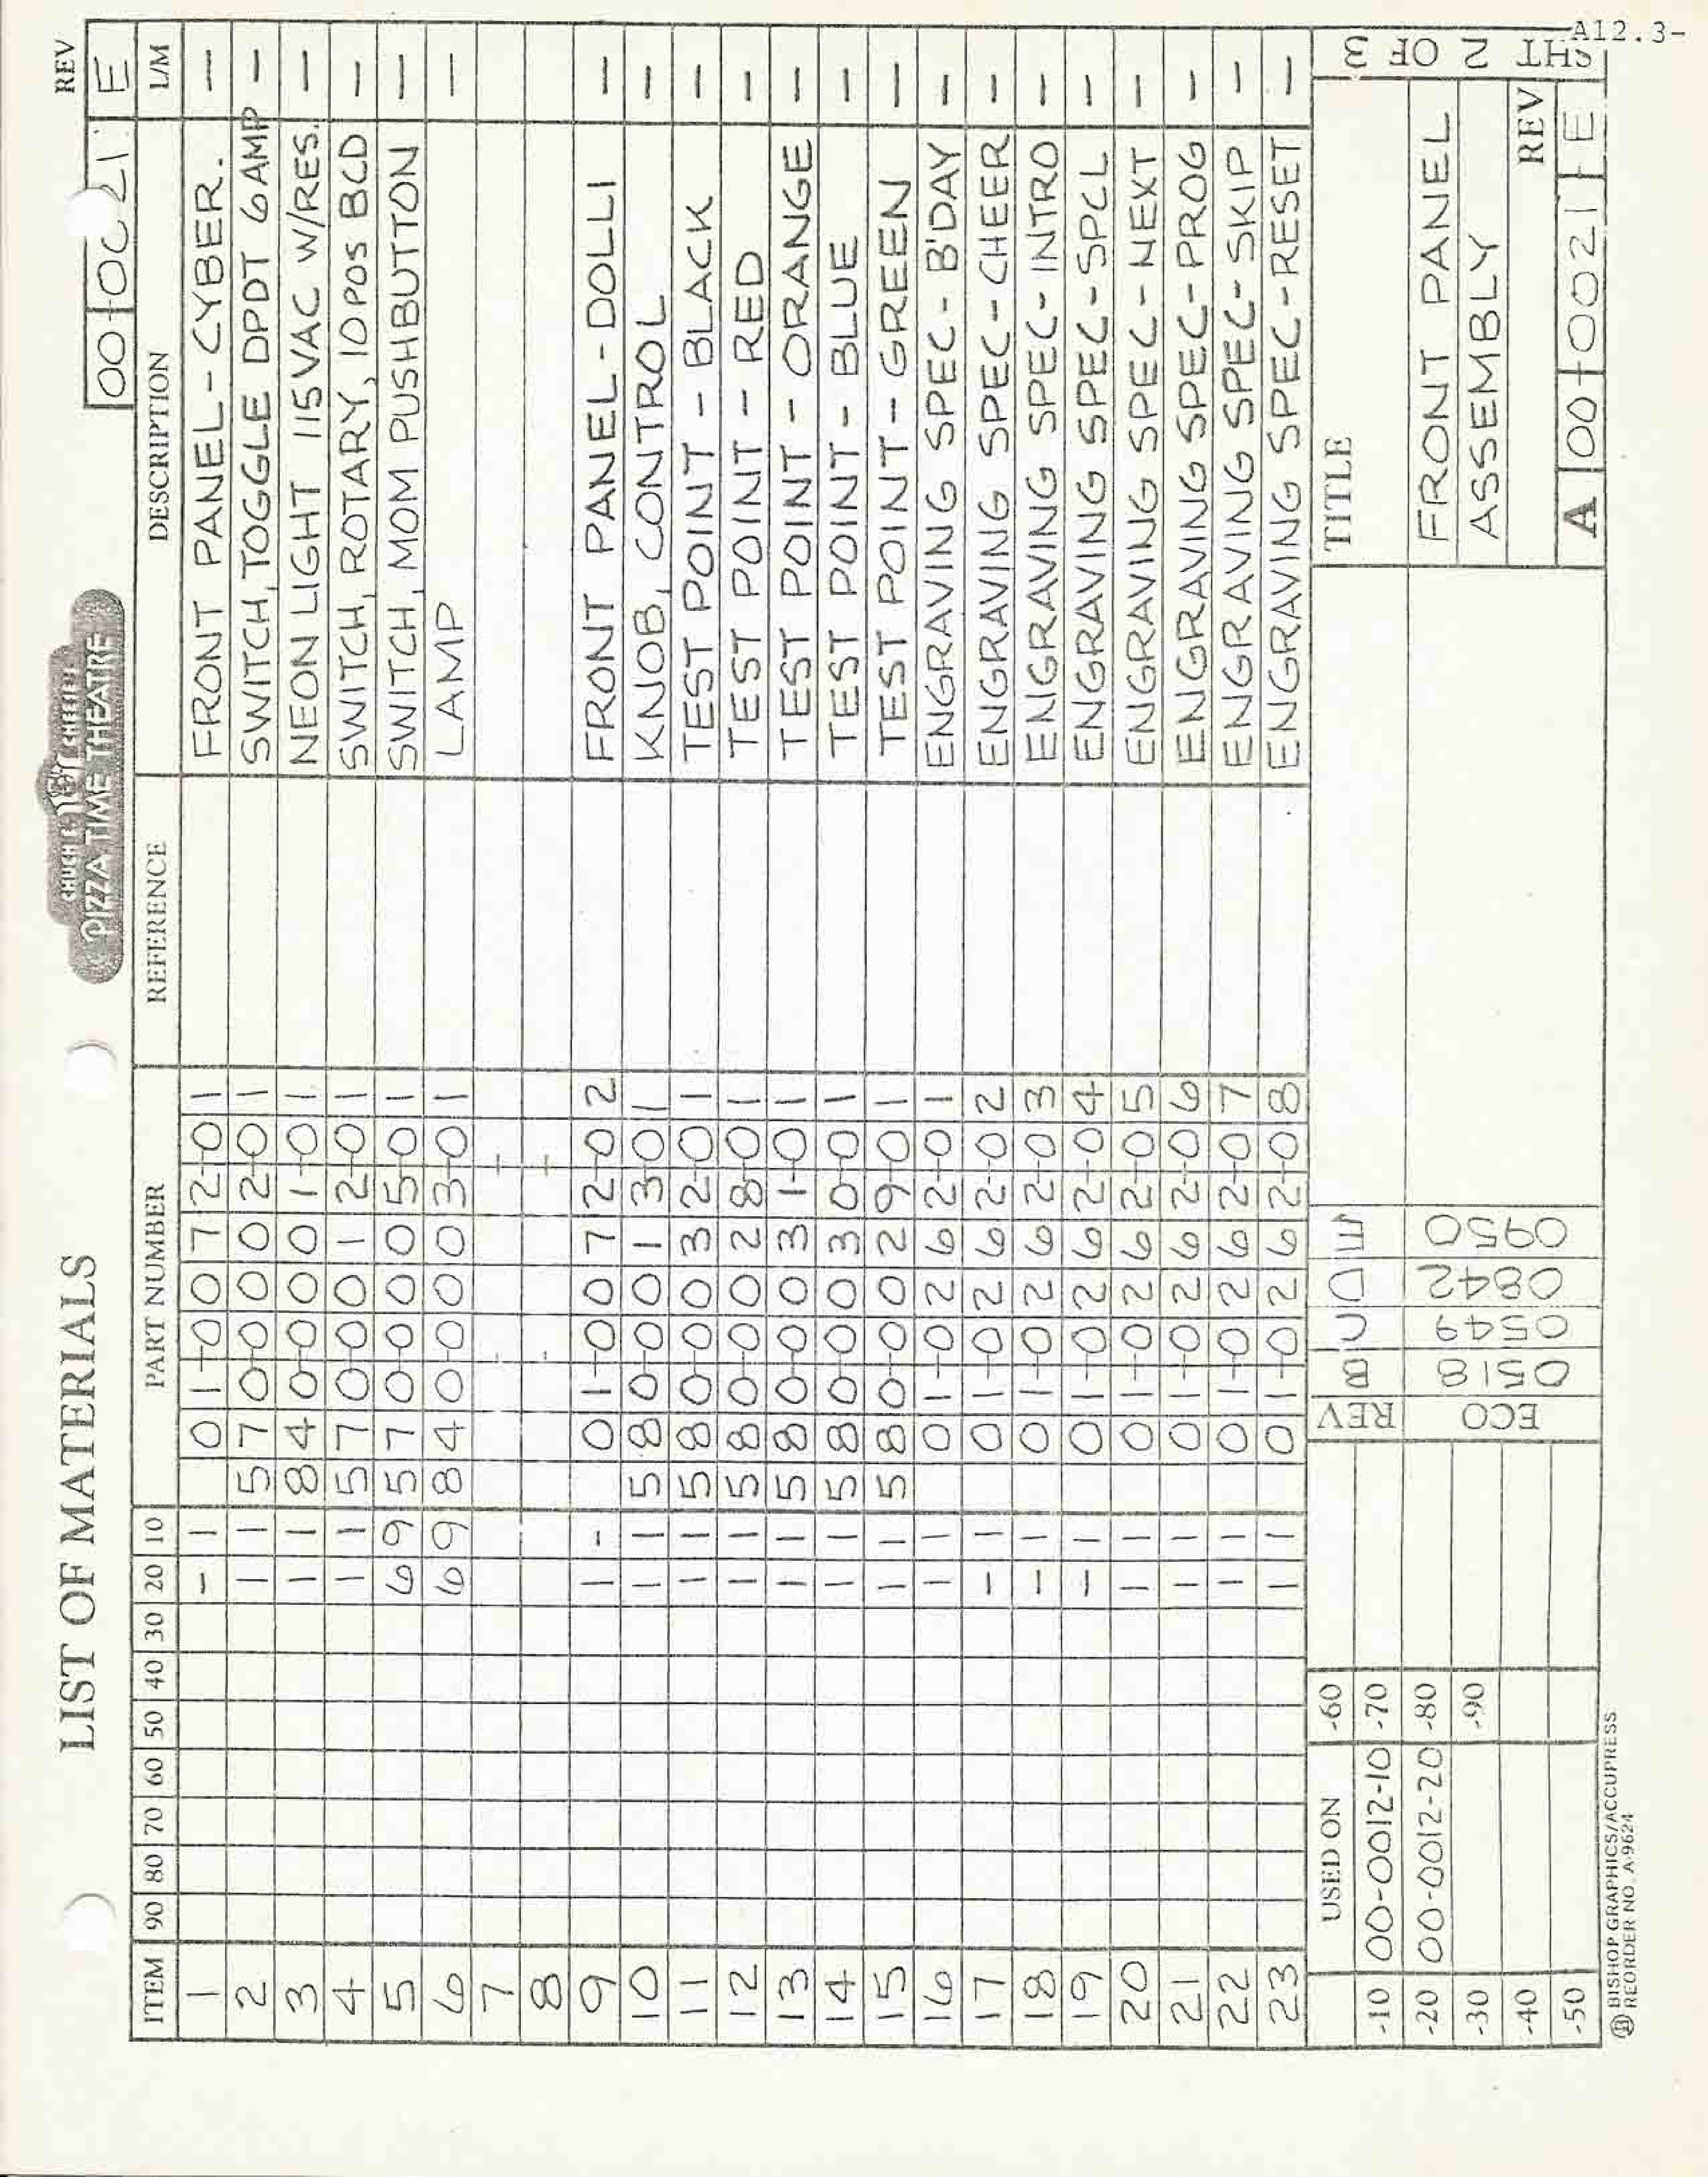 LIST OF MATERIALS
CHUCK E. CHEESE'S
PIZZA TIME THEATRE
REV
00-0021 E
ITEM 90 80 70 60 50 40 30 20 10 PART NUMBER REFERENCE DESCRIPTION L/M
1 - 1 01-0072-011 FRONT PANEL-CYBER. -
2 1 1 570-0002-011 SWITCH, TOGGLE DPDT 6AMP -
3 1 1 840-0001-011 NEON LIGHT 115VAC W/RES. -
4 1 1 570-0012-011 SWITCH, ROTARY, 10 POS BCD -
5 6 9 570-0005-011 SWITCH, MOM PUSHBUTTON -
6 6 9 840-0003-011 LAMP -
7
8
9 1 - 01-0072-022 FRONT PANEL-DOLLI -
10 1 1 580-0013-011 KNOB, CONTROL -
11 1 1 580-0032-011 TEST POINT - BLACK -
12 1 1 580-0028-011 TEST POINT - RED -
13 1 1 580-0031-011 TEST POINT - ORANGE -
14 1 1 580-0030-011 TEST POINT - BLUE -
15 1 1 580-0029-011 TEST POINT - GREEN -
16 1 1 01-0262-011 ENGRAVING SPEC - B'DAY -
17 1 1 01-0262-022 ENGRAVING SPEC-CHEER -
18 1 1 01-0262-033 ENGRAVING SPEC-INTRO -
19 1 1 01-0262-044 ENGRAVING SPEC-SPCL -
20 1 1 01-0262-055 ENGRAVING SPEC-NEXT -
21 1 1 01-0262-066 ENGRAVING SPEC-PROG -
22 1 1 01-0262-077 ENGRAVING SPEC-SKIP -
23 1 1 01-0262-088 ENGRAVING SPEC-RESET -
USED ON -60
-10 00-0012-10 -70
-20 00-0012-20 -80
-30 -90
-40
-50
REV ECO
B 0518
C 0549
D 0842
E 0950
TITLE
FRONT PANEL
ASSEMBLY
REV
A 00-0021 E
SHT 2 OF 3
BISHOP GRAPHICS/ACCUPRESS
REORDER NO. A-9624
A12.3-